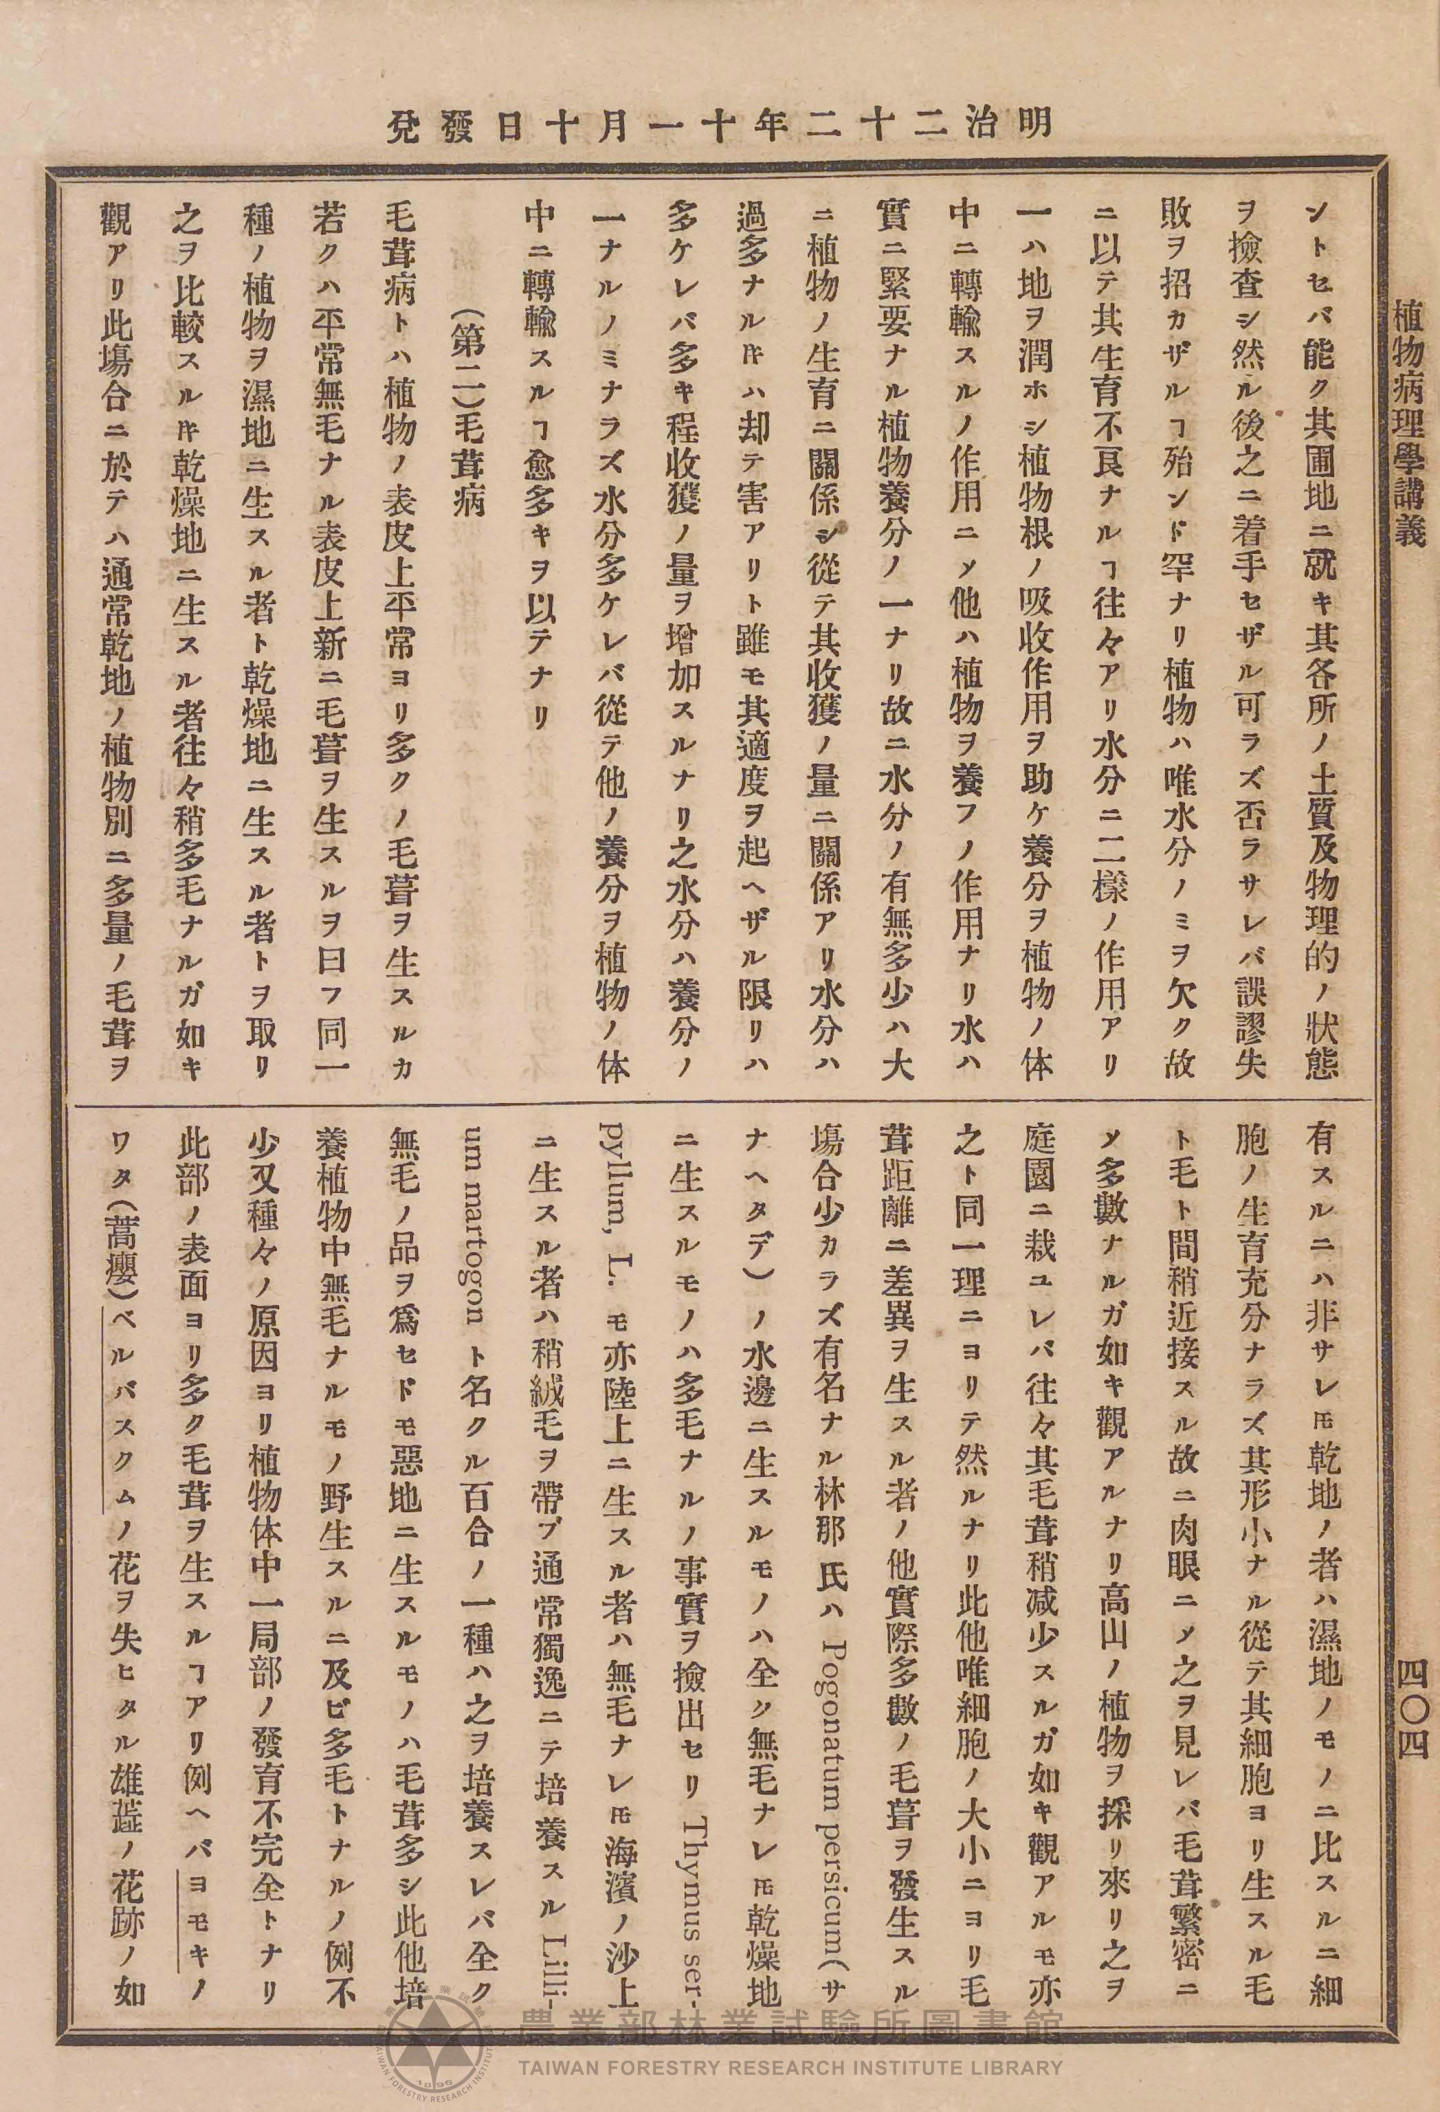 明治二十二年十一月十日發兌
植物病理學講義
四〇四
ントセバ能ク其圃地ニ就キ其各所ノ土質及物理的ノ狀態
ヲ撿查シ然ル後之ニ着手セザル可ラズ否ラサレバ誤謬失
敗ヲ招カザルヿ殆ンド罕ナリ植物ハ唯水分ノミヲ欠ク故
ニ以テ其生育不良ナルヿ往々アリ水分ニ二樣ノ作用アリ
一ハ地ヲ潤ホシ植物根ノ吸收作用ヲ助ケ養分ヲ植物ノ体
中ニ轉輸スルノ作用ニメ他ハ植物ヲ養フノ作用ナリ水ハ
實ニ緊要ナル植物養分ノ一ナリ故ニ水分ノ有無多少ハ大
ニ植物ノ生育ニ關係シ從テ其收獲ノ量ニ關係アリ水分ハ
過多ナル𪜈ハ却テ害アリト雖モ其適度ヲ起ヘザル限リハ
多ケレバ多キ程收獲ノ量ヲ增加スルナリ之水分ハ養分ノ
一ナルノミナラズ水分多ケレバ從テ他ノ養分ヲ植物ノ体
中ニ轉輸スルヿ愈多キヲ以テナリ
(第二)毛茸病
毛茸病トハ植物ノ表皮上平常ヨリ多クノ毛茸ヲ生スルカ
若クハ平常無毛ナル表皮上新ニ毛茸ヲ生スルヲ曰フ同一
種ノ植物ヲ濕地ニ生スル者ト乾燥地ニ生スル者トヲ取リ
之ヲ比較スル𪜈乾燥地ニ生スル者往々稍多毛ナルガ如キ
觀アリ此塲合ニ於テハ通常乾地ノ植物別ニ多量ノ毛茸ヲ
有スルニハ非サレ𪜈乾地ノ者ハ濕地ノモノニ比スルニ細
胞ノ生育充分ナラズ其形小ナル從テ其細胞ヨリ生スル毛
ト毛ト間稍近接スル故ニ肉眼ニメ之ヲ見レバ毛茸繁密ニ
メ多數ナルガ如キ觀アルナリ高山ノ植物ヲ採リ來リ之ヲ
庭園ニ栽ユレバ往々其毛茸稍減少スルガ如キ觀アルモ亦
之ト同一理ニヨリテ然ルナリ此他唯細胞ノ大小ニヨリ毛
茸距離ニ差異ヲ生スル者ノ他實際多數ノ毛茸ヲ發生スル
塲合少カラズ有名ナル林那氏ハ Pogonatum persicum(サ
ナヘタデ)ノ水邊ニ生スルモノハ全ク無毛ナレ𪜈乾燥地
ニ生スルモノハ多毛ナルノ事實ヲ撿出セリ Thymus ser-
pyllum, L. モ亦陸上ニ生スル者ハ無毛ナレ𪜈海濱ノ沙上
ニ生スル者ハ稍絨毛ヲ帶ブ通常獨逸ニテ培養スル Lilli-
um martogon ト名クル百合ノ一種ハ之ヲ培養スレバ全ク
無毛ノ品ヲ爲セドモ惡地ニ生スルモノハ毛茸多シ此他培
養植物中無毛ナルモノ野生スルニ及ビ多毛トナルノ例不
少又種々ノ原因ヨリ植物体中一局部ノ發育不完全トナリ
此部ノ表面ヨリ多ク毛茸ヲ生スルヿアリ例ヘバヨモキノ
ワタ(蒿癭)ベルバスクムノ花ヲ失ヒタル雄蕋ノ花跡ノ如
農業部林業試驗所圖書館
TAIWAN FORESTRY RESEARCH INSTITUTE LIBRARY